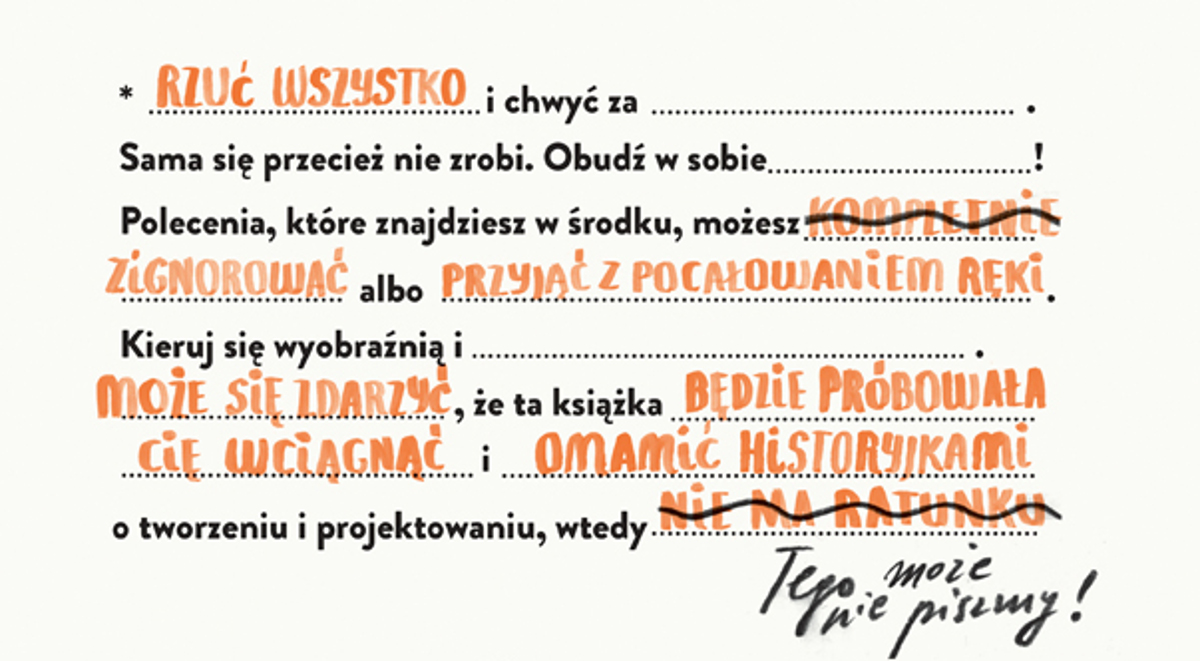 * RZUĆ WSZYSTKO i chwyć za .................... .
Sama się przecież nie zrobi. Obudź w sobie....................!
Polecenia, które znajdziesz w środku, możesz KOMPLETNIE
ZIGNOROWAĆ albo PRZYJĄĆ Z POCAŁOWANIEM RĘKI.
Kieruj się wyobraźnią i .................... .
MOŻE SIĘ ZDARZYĆ, że ta książka BĘDZIE PRÓBOWAŁA
CIĘ WCIĄGNĄĆ i OMAMIĆ HISTORYJKAMI
o tworzeniu i projektowaniu, wtedy NIE MA RATUNKU
Tego może
nie piszmy!